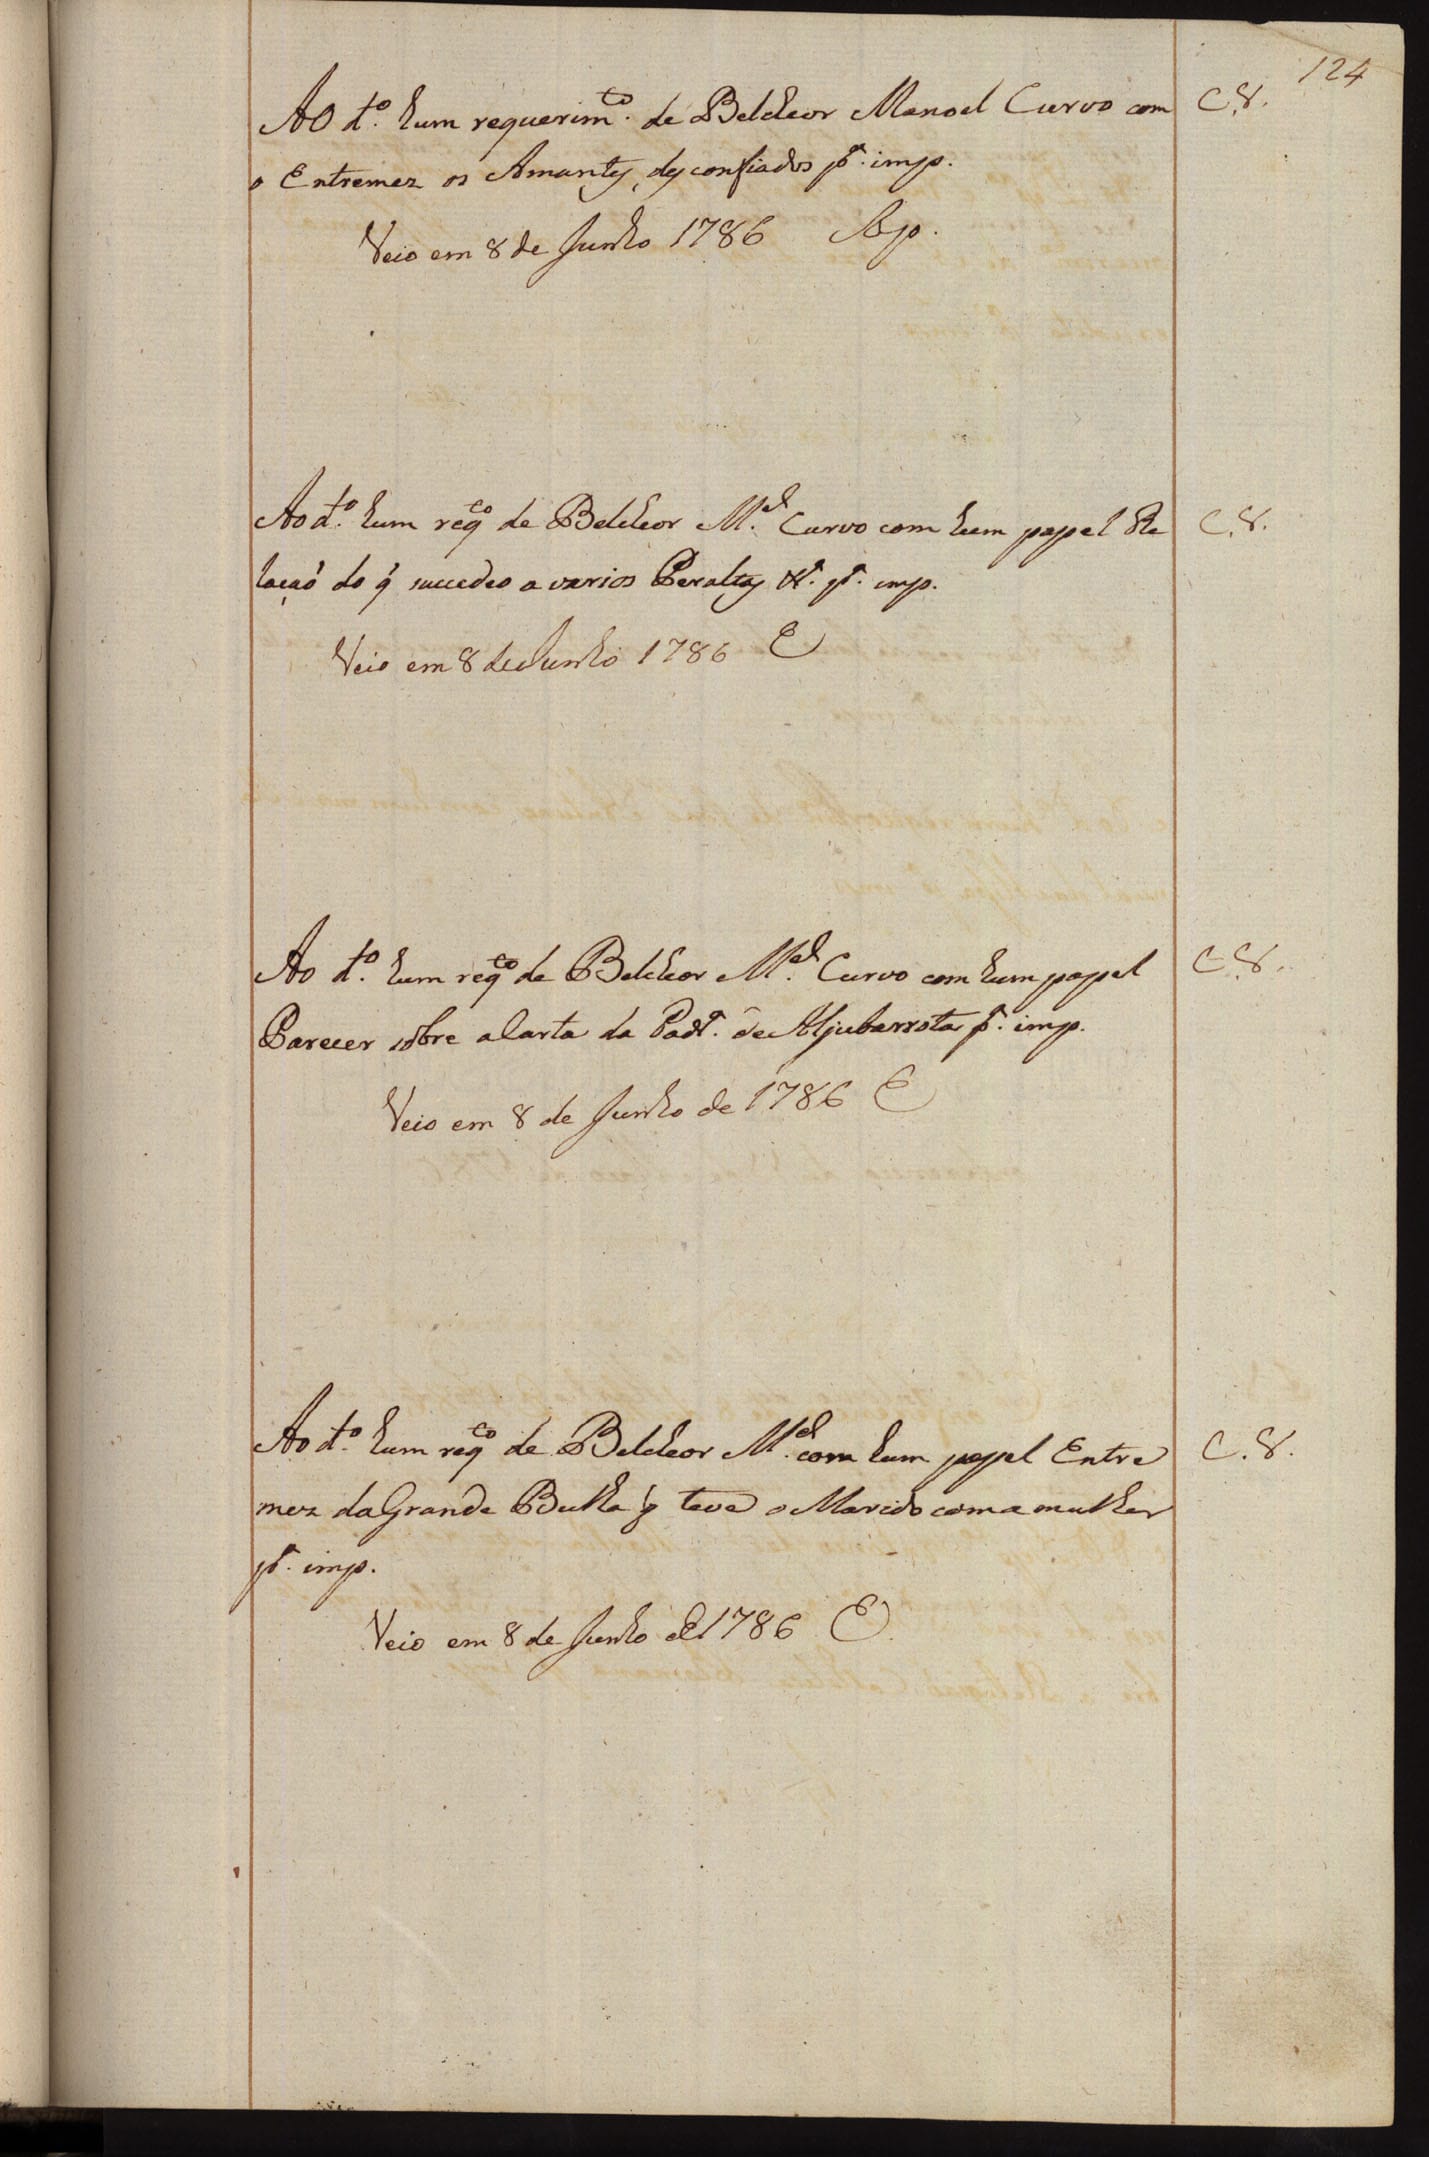 124
Ao d.º hum requerim.to de Belchior Manoel Curvo com
C.8.
o Entremez os Amantes desconfiados p.ª imp.
Veio em 8 de Junho 1786
Ao d.to hum reqco de Belchior M.el Curvo com hum papel Re
C.8.
laçaõ do q̃ succedeo a varios Peraltas &.ª p.ª imp.
Veio em 8 de Junho 1786 E
Ao d.to hum reqco de Belchior M.el Curvo com hum papel
C.8.
Parecer sobre a Carta da Padr.ª de Aljubarrota p.ª imp.
Veio em 8 de Junho de 1786 E
Ao d.to hum reqco de Belchior M.el com hum papel Entre
C.8.
mez da Grande Bulha q̃ teve o Marido com a mulher
p.ª imp.
Veio em 8 de Junho de 1786 E